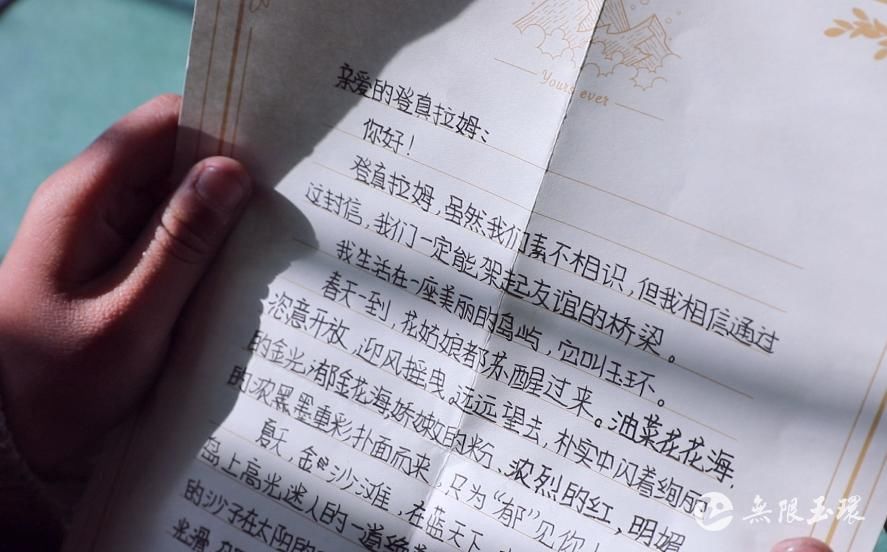 Yours ever
亲爱的登真拉姆:
你好!
登真拉姆,虽然我们素不相识,但我相信通过
这封信,我们一定能架起友谊的桥梁。
我生活在一座美丽的岛屿,它叫玉环。
春天一到,花姑娘都苏醒过来。油菜花花海,
恣意开放,迎风摇曳。远远望去,朴实中闪着绚丽
的金光;郁金花海,娇嫩的粉、浓烈的红,明媚
的浓墨重彩扑面而来,只为“郁”见你!
夏天,金色沙滩,在蓝天下
岛上高光迷人的一道绝
的沙子在太阳的
光滑
無限玉環